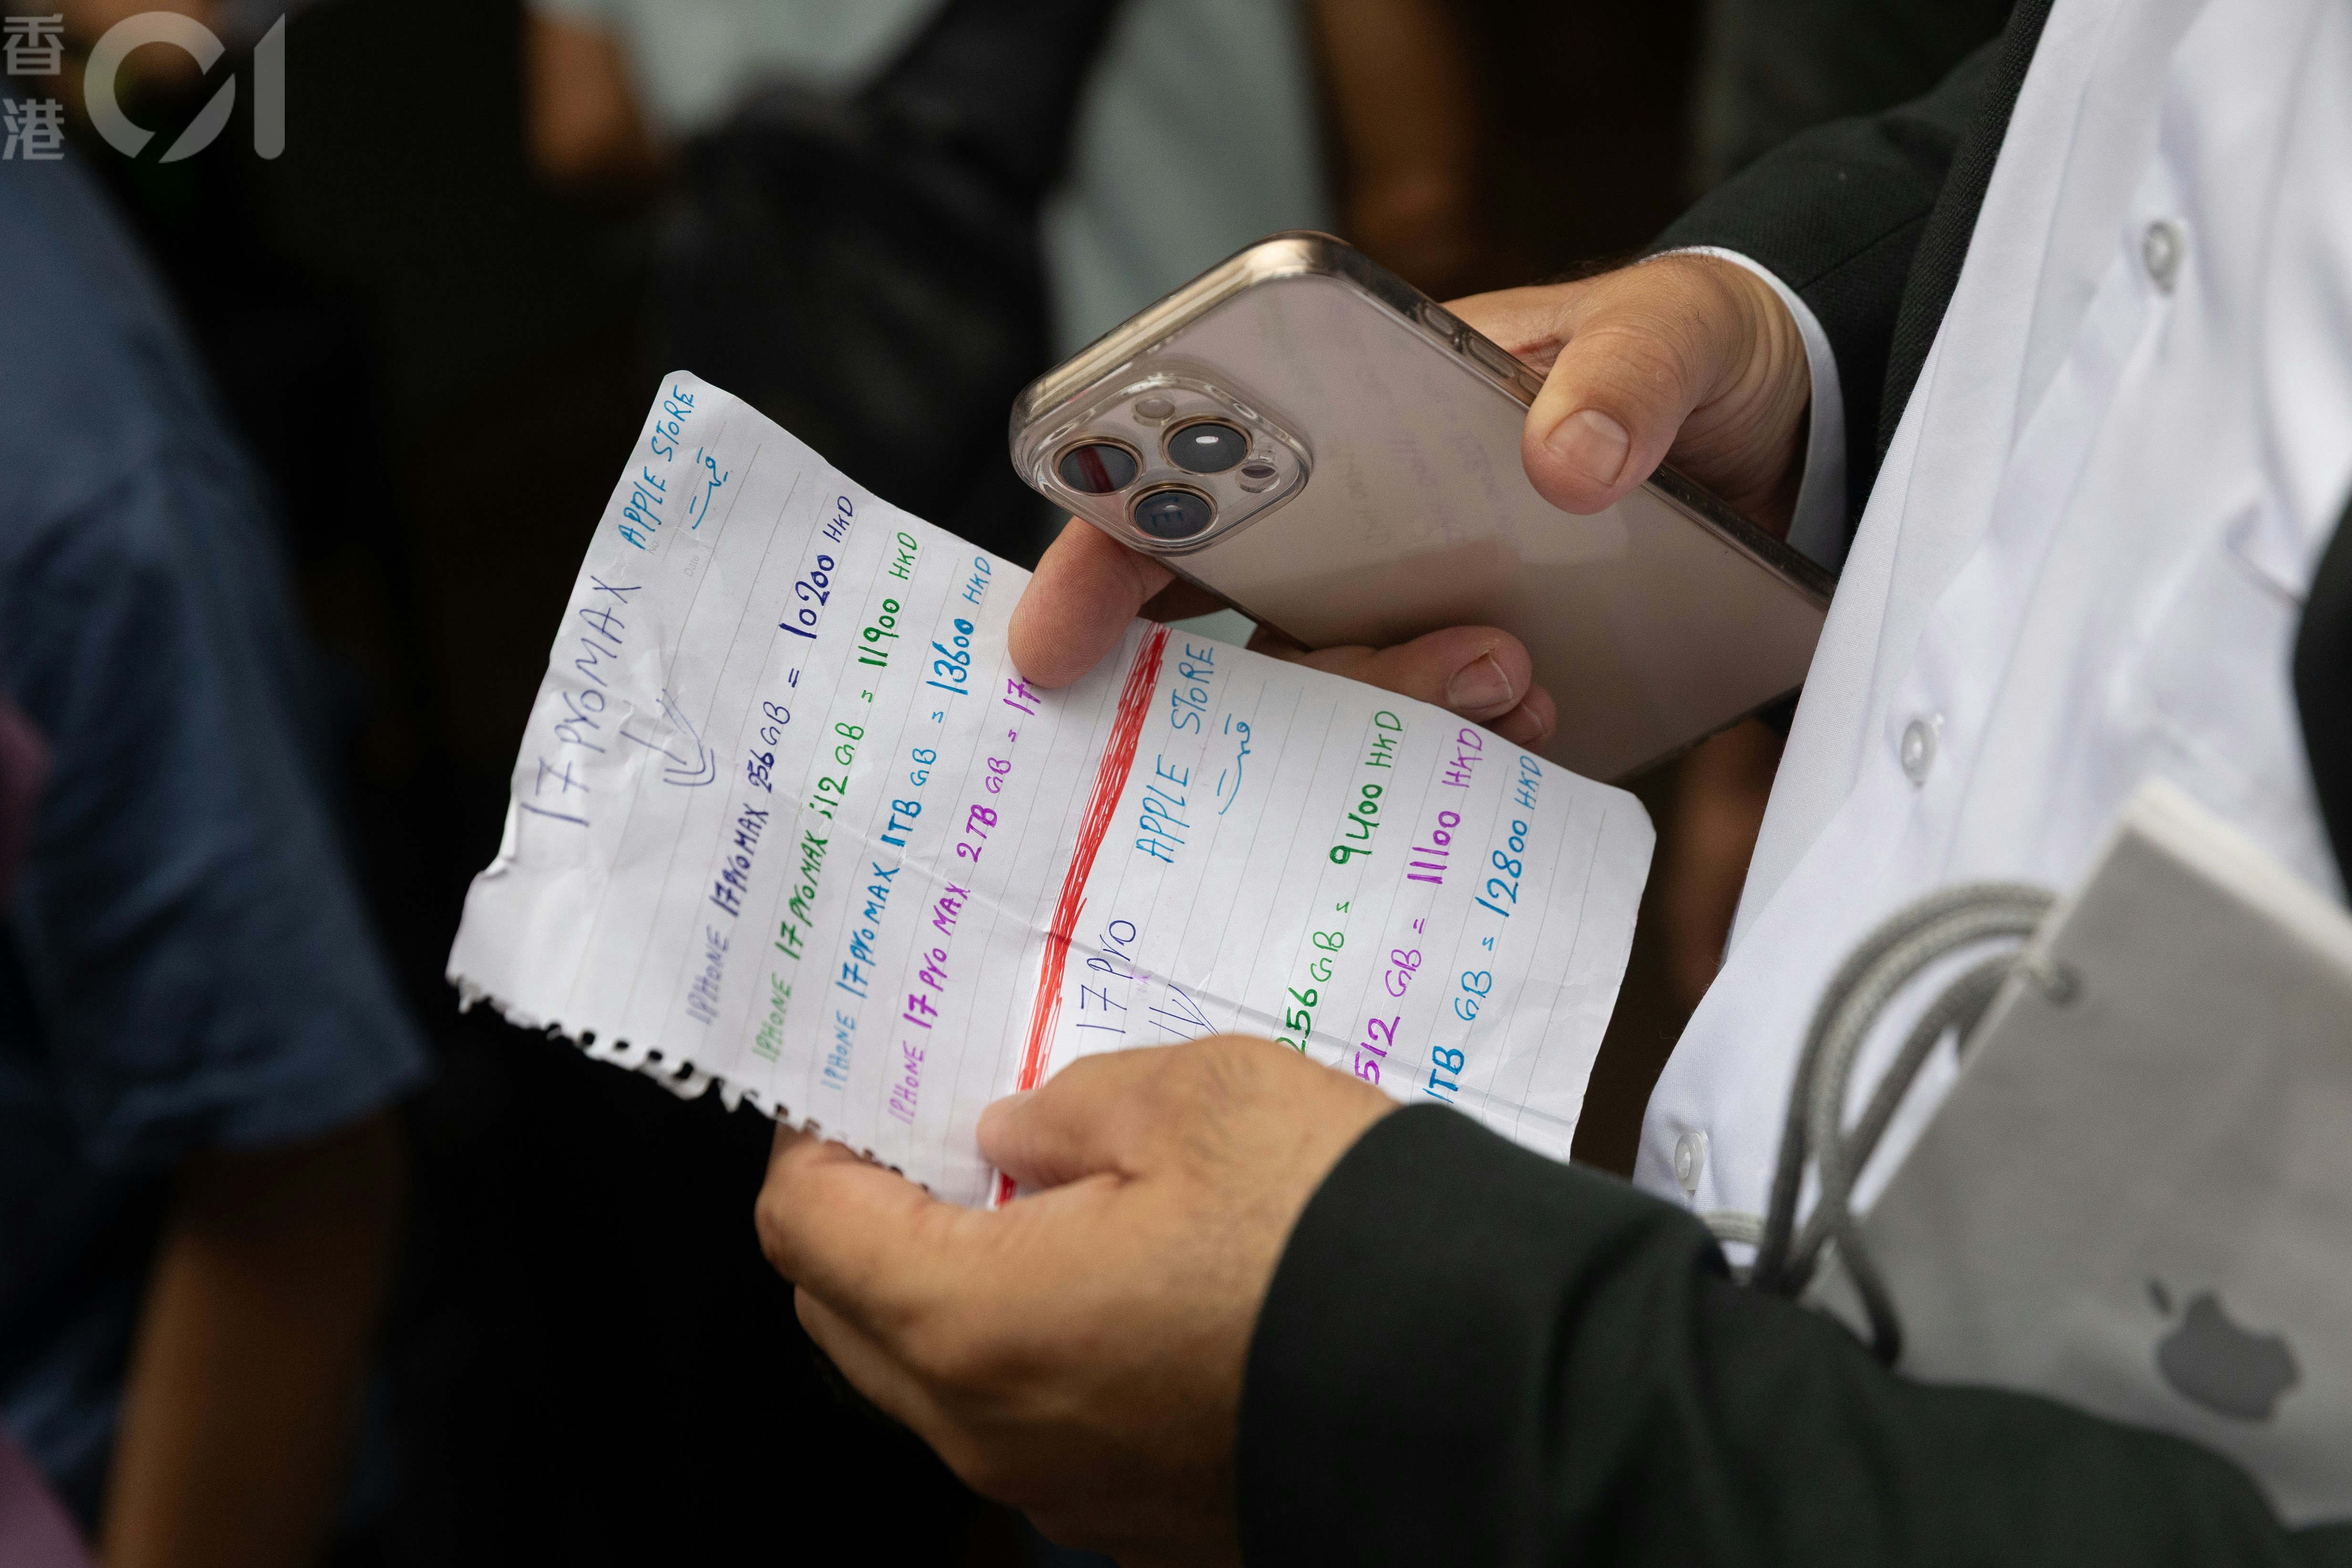 香港01
17 PrOMAX APPLE STORE
No.
Date
IPHONE 17PrOMAX 256GB = 10200 HKD
IPHONE 17 PrOMAX 512 GB = 11900 HKD
IPHONE 17PrOMAX 1TB GB = 13600 HKD
IPHONE 17 PrO MAX 2TB GB = 17
17 PrO APPLE STORE
256 GB = 9400 HKD
512 GB = 11100 HKD
1TB GB = 12800 HKD